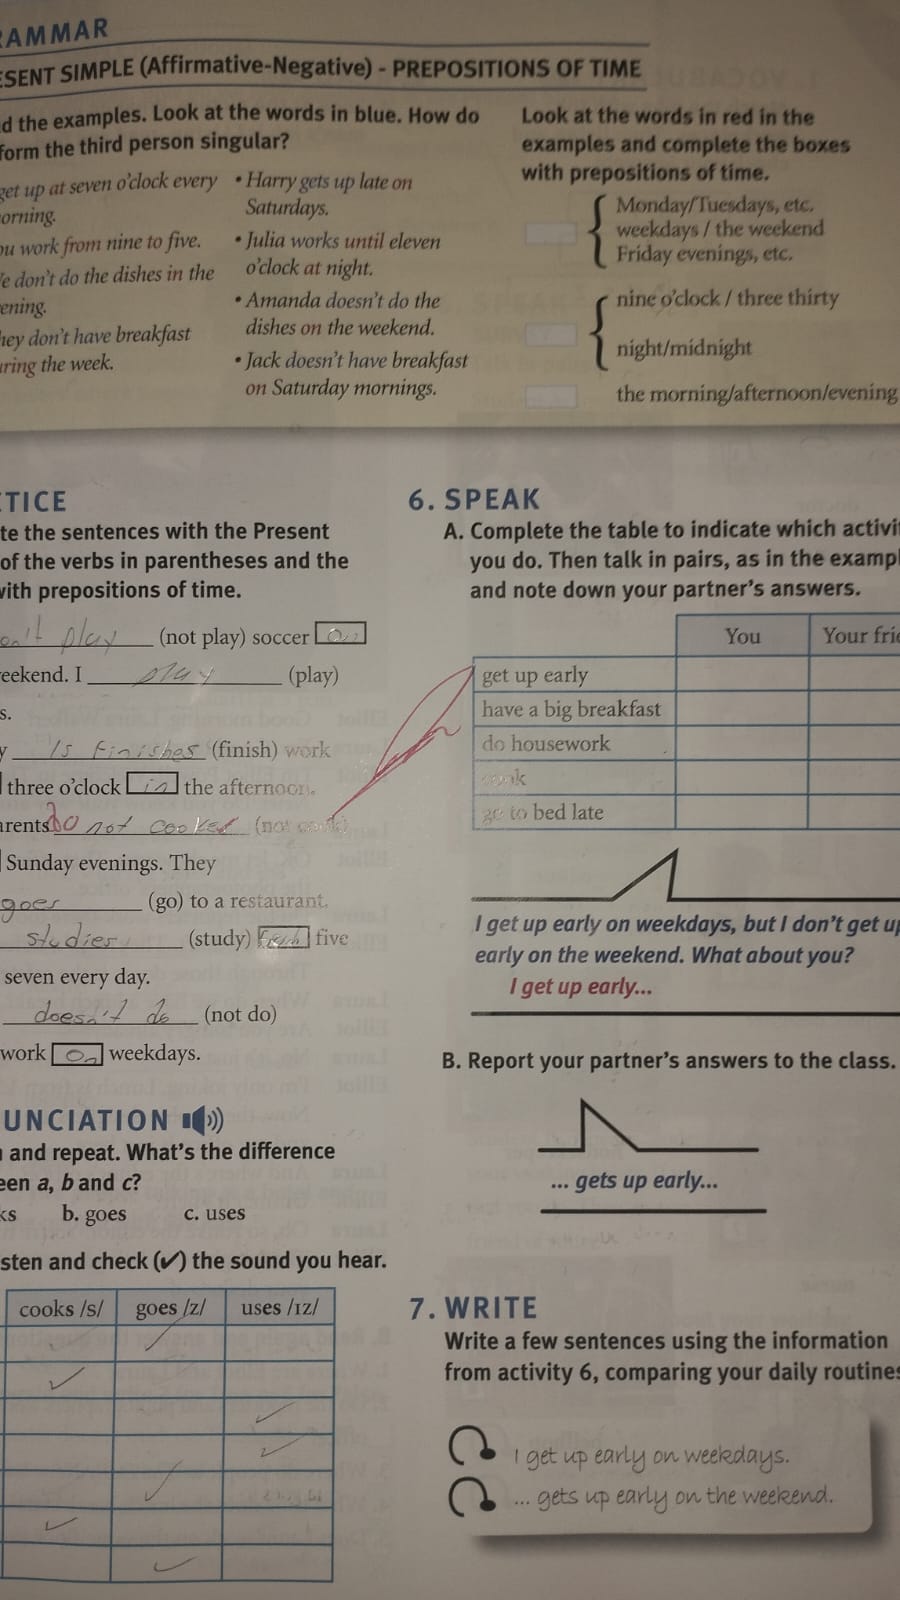 RAMMAR
ESENT SIMPLE (Affirmative-Negative) - PREPOSITIONS OF TIME
d the examples. Look at the words in blue. How do
form the third person singular?
get up at seven o'clock every
orning.
ou work from nine to five.
e don't do the dishes in the
ening.
hey don't have breakfast
uring the week.
• Harry gets up late on
Saturdays.
• Julia works until eleven
o'clock at night.
• Amanda doesn't do the
dishes on the weekend.
• Jack doesn't have breakfast
on Saturday mornings.
Look at the words in red in the
examples and complete the boxes
with prepositions of time.
Monday/Tuesdays, etc.
weekdays / the weekend
Friday evenings, etc.
nine o'clock / three thirty
night/midnight
the morning/afternoon/evening
CTICE
te the sentences with the Present
of the verbs in parentheses and the
with prepositions of time.
on't play (not play) soccer on
eekend. I play (play)
s.
y Is finishes (finish) work
three o'clock in the afternoon.
arents do not cooked (not cook)
Sunday evenings. They
goes (go) to a restaurant.
studies (study) from five
seven every day.
doesn't do (not do)
work on weekdays.
UNCIATION
n and repeat. What's the difference
een a, b and c?
ks b. goes c. uses
sten and check (✓) the sound you hear.
cooks /s/ goes /z/ uses /ɪz/
6. SPEAK
A. Complete the table to indicate which activi
you do. Then talk in pairs, as in the exampl
and note down your partner's answers.
You Your frie
get up early
have a big breakfast
do housework
cook
go to bed late
I get up early on weekdays, but I don't get up
early on the weekend. What about you?
I get up early...
B. Report your partner's answers to the class.
... gets up early...
7. WRITE
Write a few sentences using the information
from activity 6, comparing your daily routines
I get up early on weekdays.
... gets up early on the weekend.